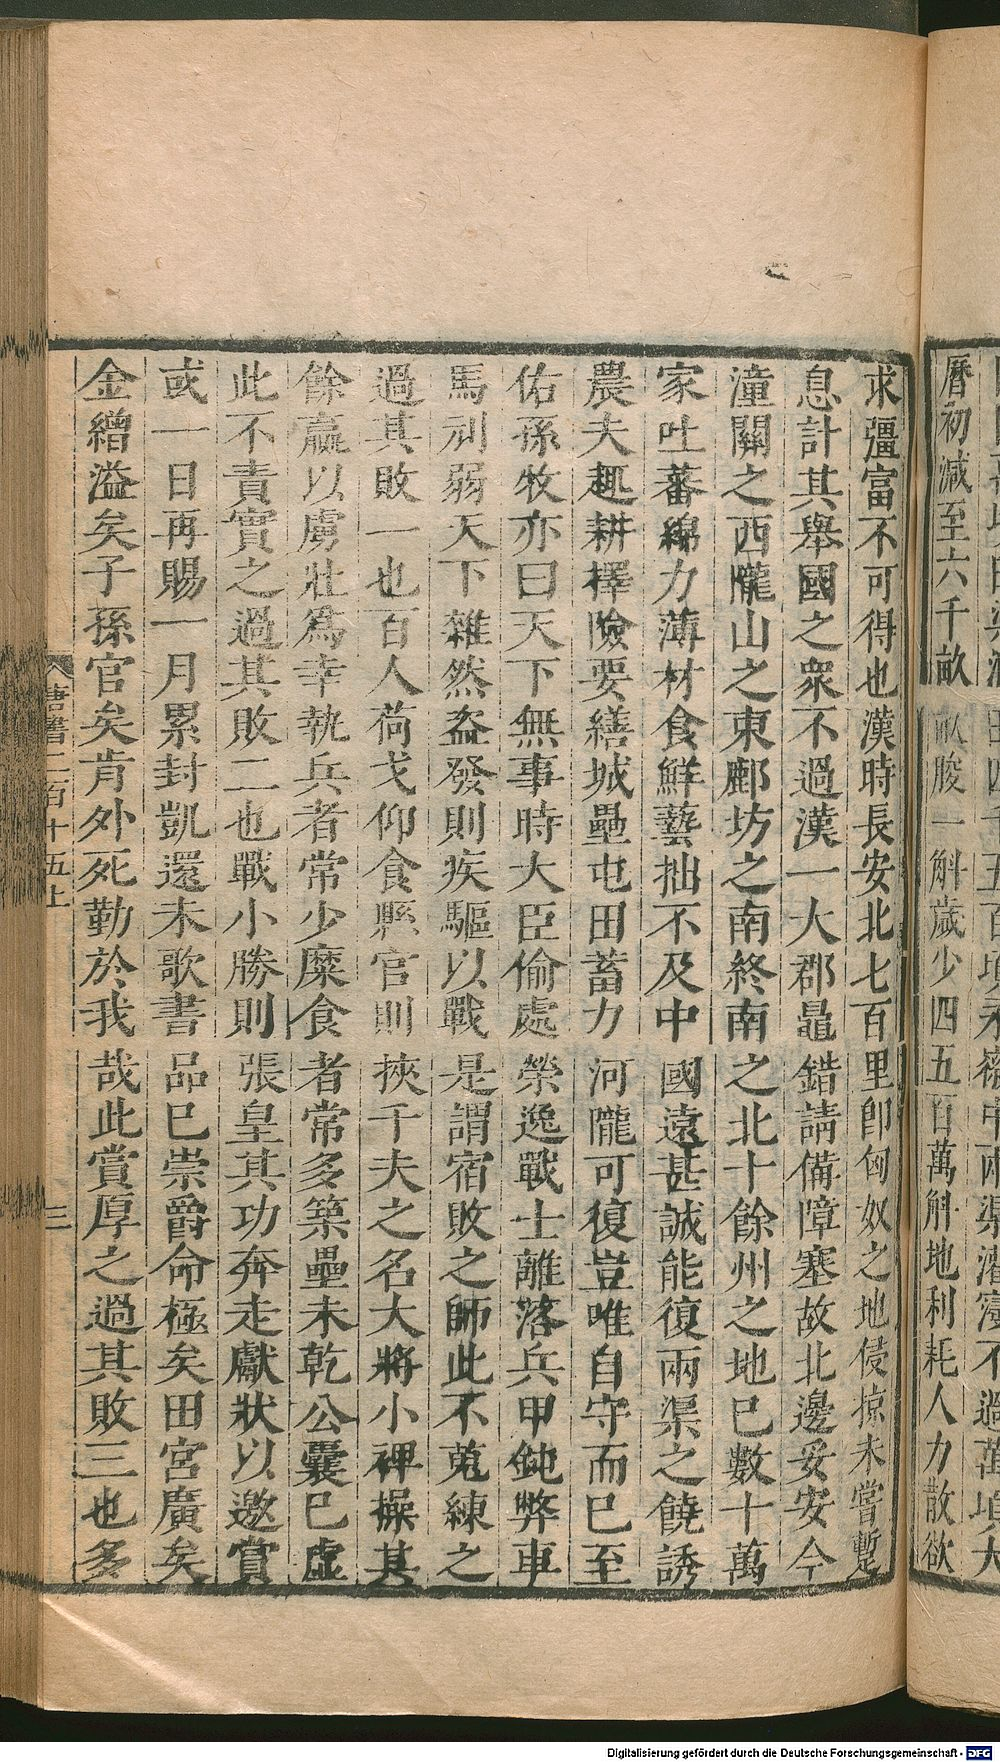 曆初減至六千畝畝朘一斛歲少四五百萬斛地利耗人力散欲
求彊富不可得也漢時長安北七百里卽匈奴之地侵掠未嘗暫
息計其舉國之衆不過漢一大郡鼂錯請備障塞故北邊妥安今
潼關之西隴山之東鄜坊之南終南之北十餘州之地已數十萬
家吐蕃綿力薄材食鮮藝拙不及中國遠甚誠能復兩渠之饒誘
農夫趣耕擇險要繕城壘屯田蓄力河隴可復豈唯自守而已至
佑孫牧亦曰天下無事時大臣偷處榮逸戰士離落兵甲鈍弊車
馬刓弱天下雜然盗發則疾驅以戰是謂宿敗之師此不蒐練之
過其敗一也百人荷戈仰食縣官則挾千夫之名大將小裨操其
餘贏以虜壯爲幸執兵者常少糜食者常多築壘未乾公囊已虛
此不責實之過其敗二也戰小勝則張皇其功奔走獻狀以邀賞
或一日再賜一月累封凱還未歌書品已崇爵命極矣田宮廣矣
金繒溢矣子孫官矣肯外死勤於我哉此賞厚之過其敗三也多
唐書二百十五上
三
Digitalisierung gefördert durch die Deutsche Forschungsgemeinschaft - DFG